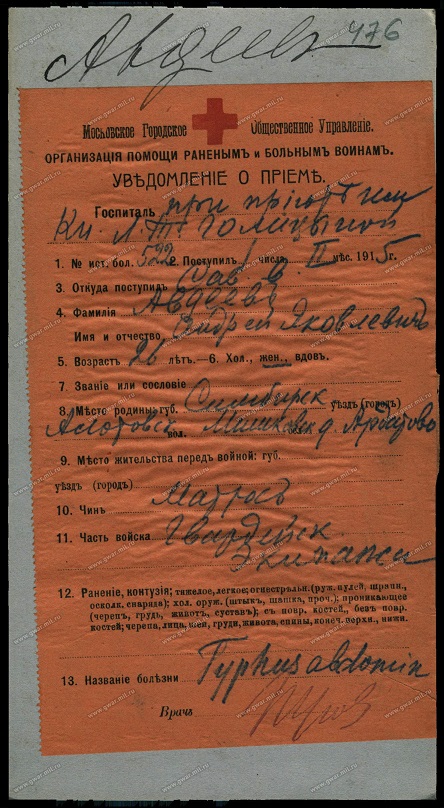 Авдеев 476
Московское Городское Общественное Управленіе.
ОРГАНИЗАЦІЯ ПОМОЩИ РАНЕНЫМЪ и БОЛЬНЫМЪ ВОИНАМЪ.
УВѢДОМЛЕНІЕ О ПРІЕМѢ.
Госпиталь при пріютѣ им
Кн. Голицыной
1. № ист. бол. 522 2. Поступилъ 1 числа II мѣс. 1915 г.
3. Откуда поступилъ
4. Фамилія Авдѣевъ
Имя и отчество Андрей Яковлевичъ
5. Возрастъ 26 лѣтъ.—6. Хол., жен., вдовъ.
7. Званіе или сословіе
8. Мѣсто родины: губ. Симбирск уѣздъ (городъ)
вол. д. Арбатово
9. Мѣсто жительства передъ войной: губ.
уѣздъ (городъ)
10. Чинъ Матросъ
11. Часть войска Гвардейск
Экипажа
12. Раненіе, контузія; тяжелое, легкое; огнестрѣльн. (руж. пулей, шрапн.,
осколк. снаряда); хол. оруж. (штыкъ, шашка, проч.); проникающее
(черепъ, грудь, животъ, суставъ); съ повр. костей, безъ повр.
костей; черепа, лица, шеи, груди, живота, спины, конеч. верхн., нижн.
13. Названіе болѣзни Typhus abdomin
Врачъ
www.gwar.mil.ru